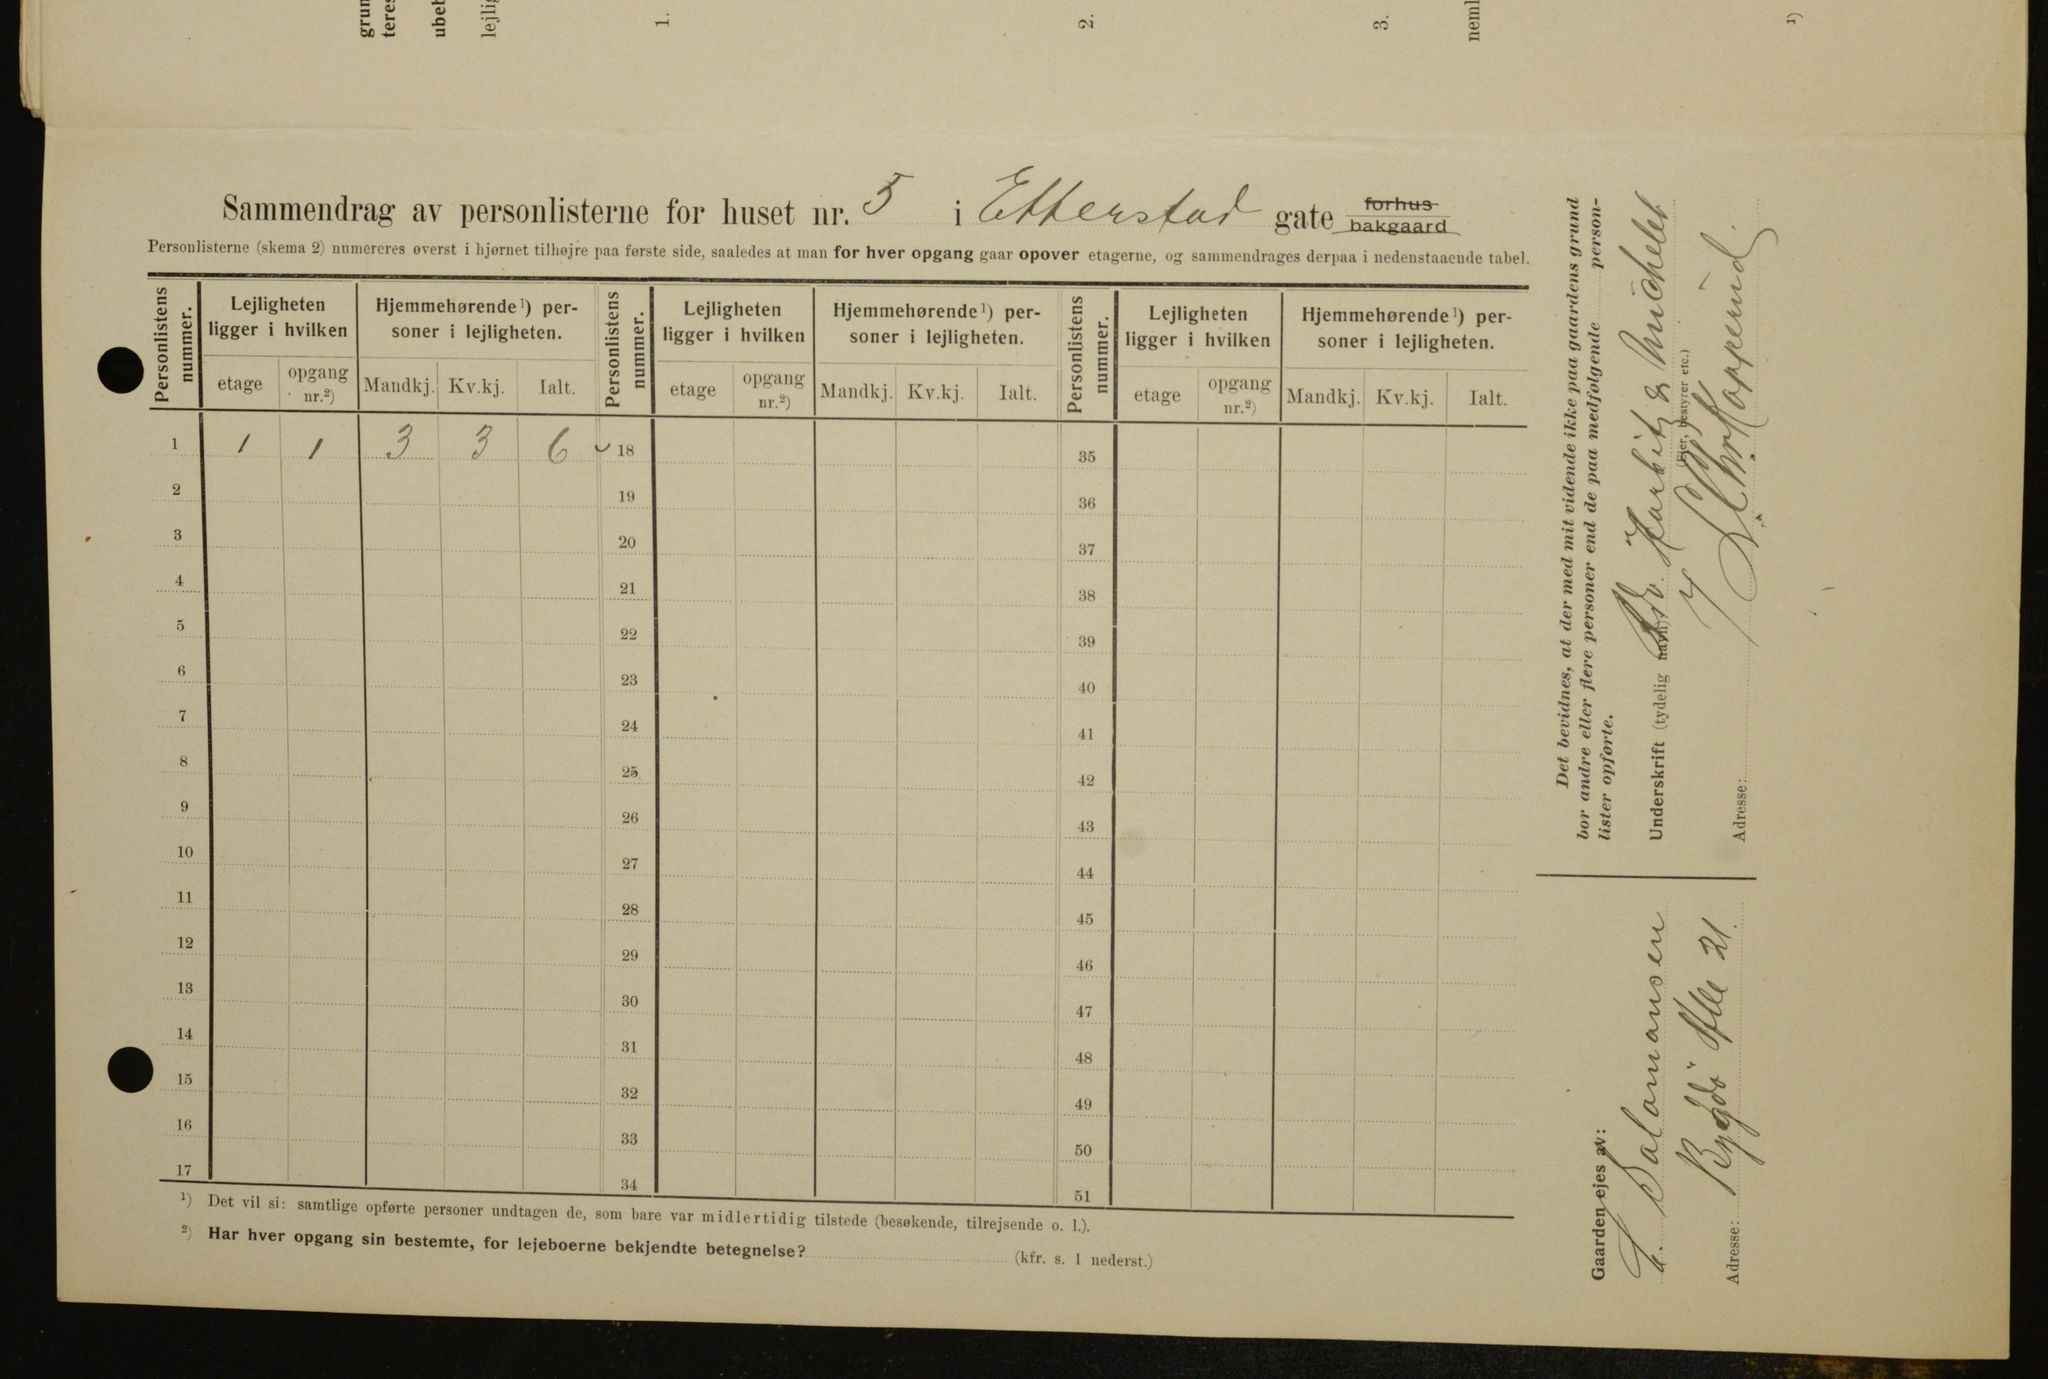 grun
teres
ubeb
lejlig
1.
2.
3.
neml
1)
Sammendrag av personlisterne for huset nr. 5 i Etterstad gate forhus bakgaard
Personlisterne (skema 2) numereres øverst i hjørnet tilhøjre paa første side, saaledes at man for hver opgang gaar opover etagerne, og sammendrages derpaa i nedenstaaende tabel.
Personlistens nummer. Lejligheten ligger i hvilken Hjemmehørende 1) personer i lejligheten. Personlistens nummer. Lejligheten ligger i hvilken Hjemmehørende 1) personer i lejligheten. Personlistens nummer. Lejligheten ligger i hvilken Hjemmehørende 1) personer i lejligheten.
etage opgang nr.2) Mandkj. Kv.kj. Ialt. etage opgang nr.2) Mandkj. Kv.kj. Ialt. etage opgang nr.2) Mandkj. Kv.kj. Ialt.
1 1 1 3 3 6 18 35
2 19 36
3 20 37
4 21 38
5 22 39
6 23 40
7 24 41
8 25 42
9 26 43
10 27 44
11 28 45
12 29 46
13 30 47
14 31 48
15 32 49
16 33 50
17 34 51
1) Det vil si: samtlige opførte personer undtagen de, som bare var midlertidig tilstede (besøkende, tilrejsende o. l.).
2) Har hver opgang sin bestemte, for lejeboerne bekjendte betegnelse? (kfr. s. 1 nederst.)
Det bevidnes, at der med mit vidende ikke paa gaardens grund
bor andre eller flere personer end de paa medfølgende person-
lister opførte.
Underskrift (tydelig navn): Harbitz & Michelet
(Ejer, bestyrer etc.)
Adresse:
Gaarden ejes av:
Salomonsen
Adresse: Bygdö Alle 21.